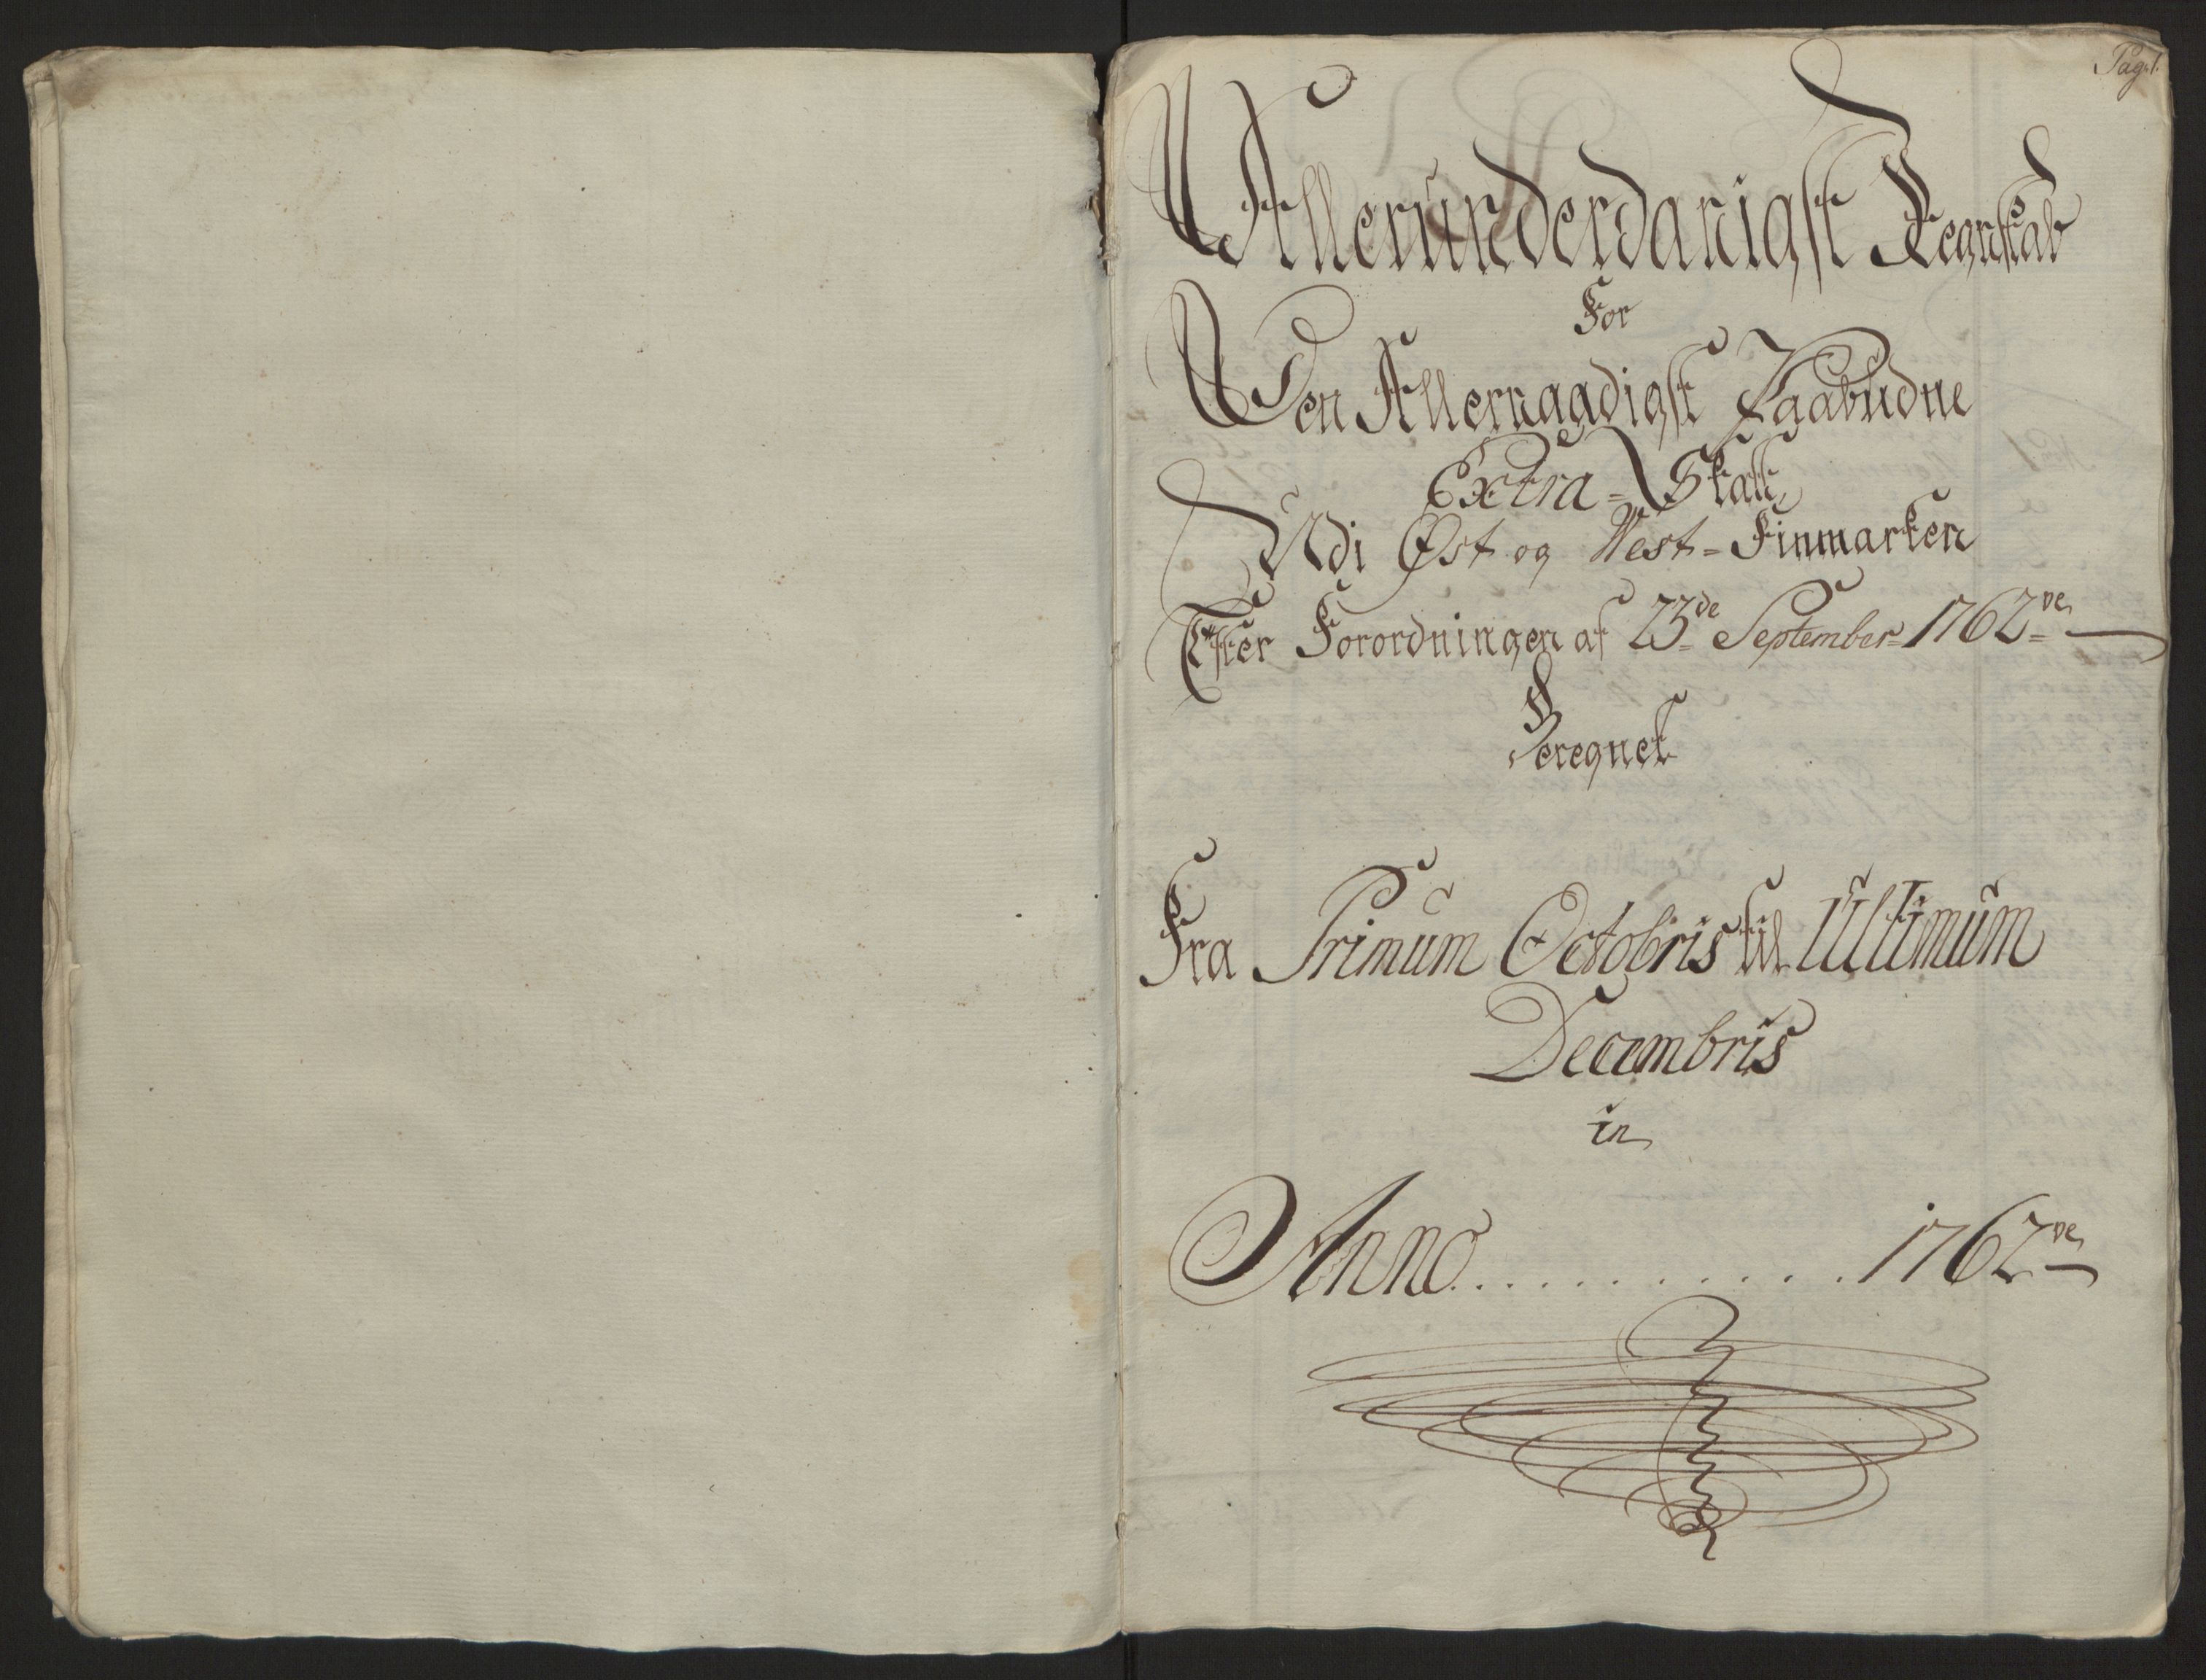 Pag: 1.
Allerunderdanigst Regnskab
For
Den Allernaadigst Paabudne
Extra-Skatt
Udi Øst og West-Finmarken
Efter Forordningen af 23de September 1762de
Beregnet
Fra Primum Octobris til Ultimum
Decembris
in
Anno. . . . . . . . . . . 1762de